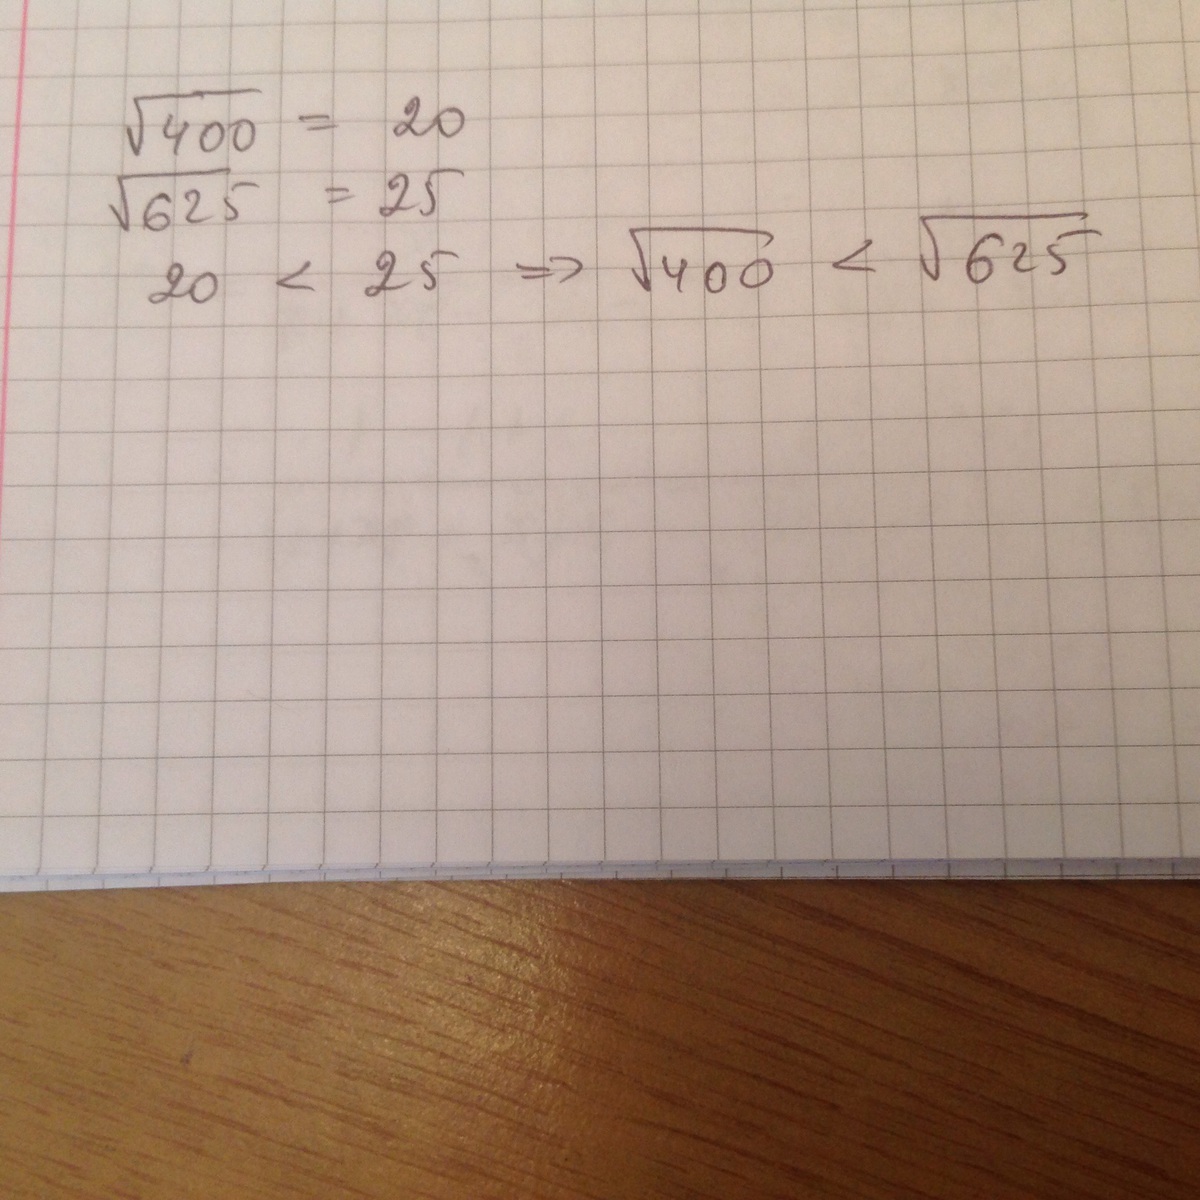 √400 = 20
√625 = 25
20 < 25 => √400 < √625